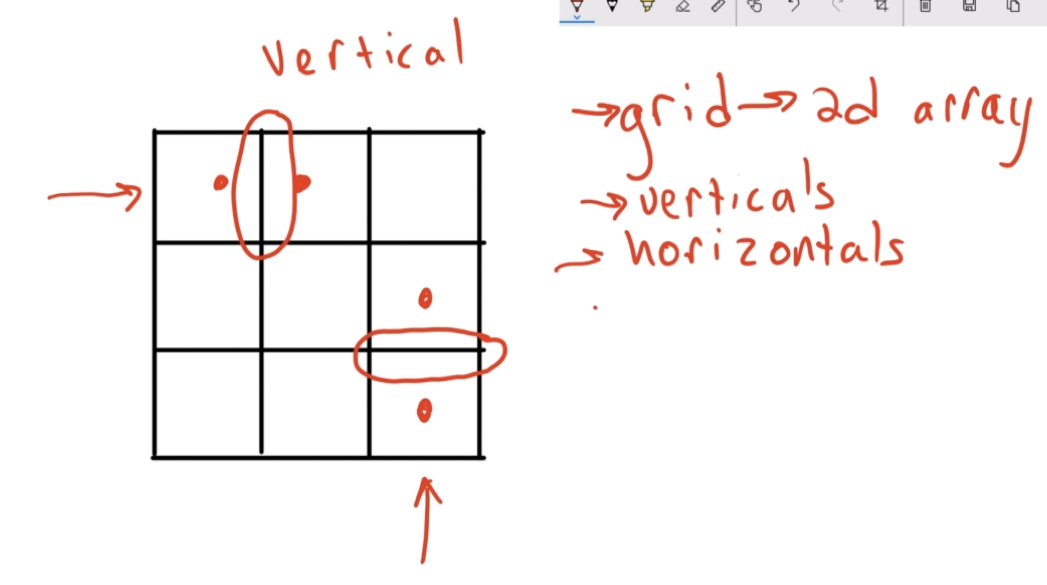 vertical
→grid→2d array
→verticals
→horizontals